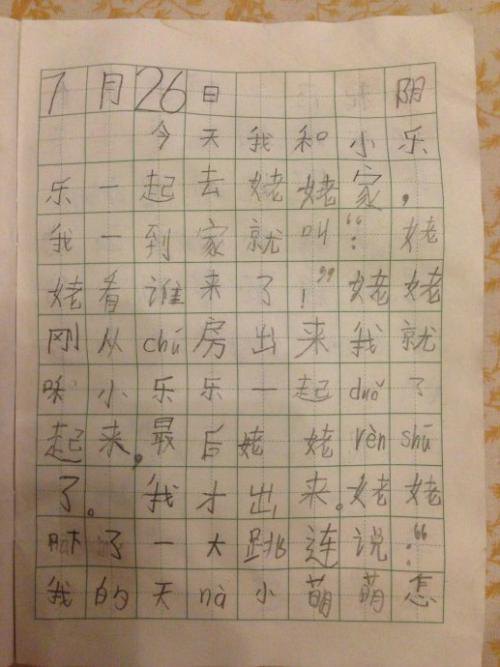 7月26日 阴
今天我和小乐
乐一起去姥姥家，
我一到家就叫：“姥
姥看谁来了！”姥姥
刚从chú房出来我就
和小乐乐一起duǒ了
起来，最后姥姥rèn shū
了。我才出来。姥姥
吓了一大跳连说：“
我的天nà小萌萌怎